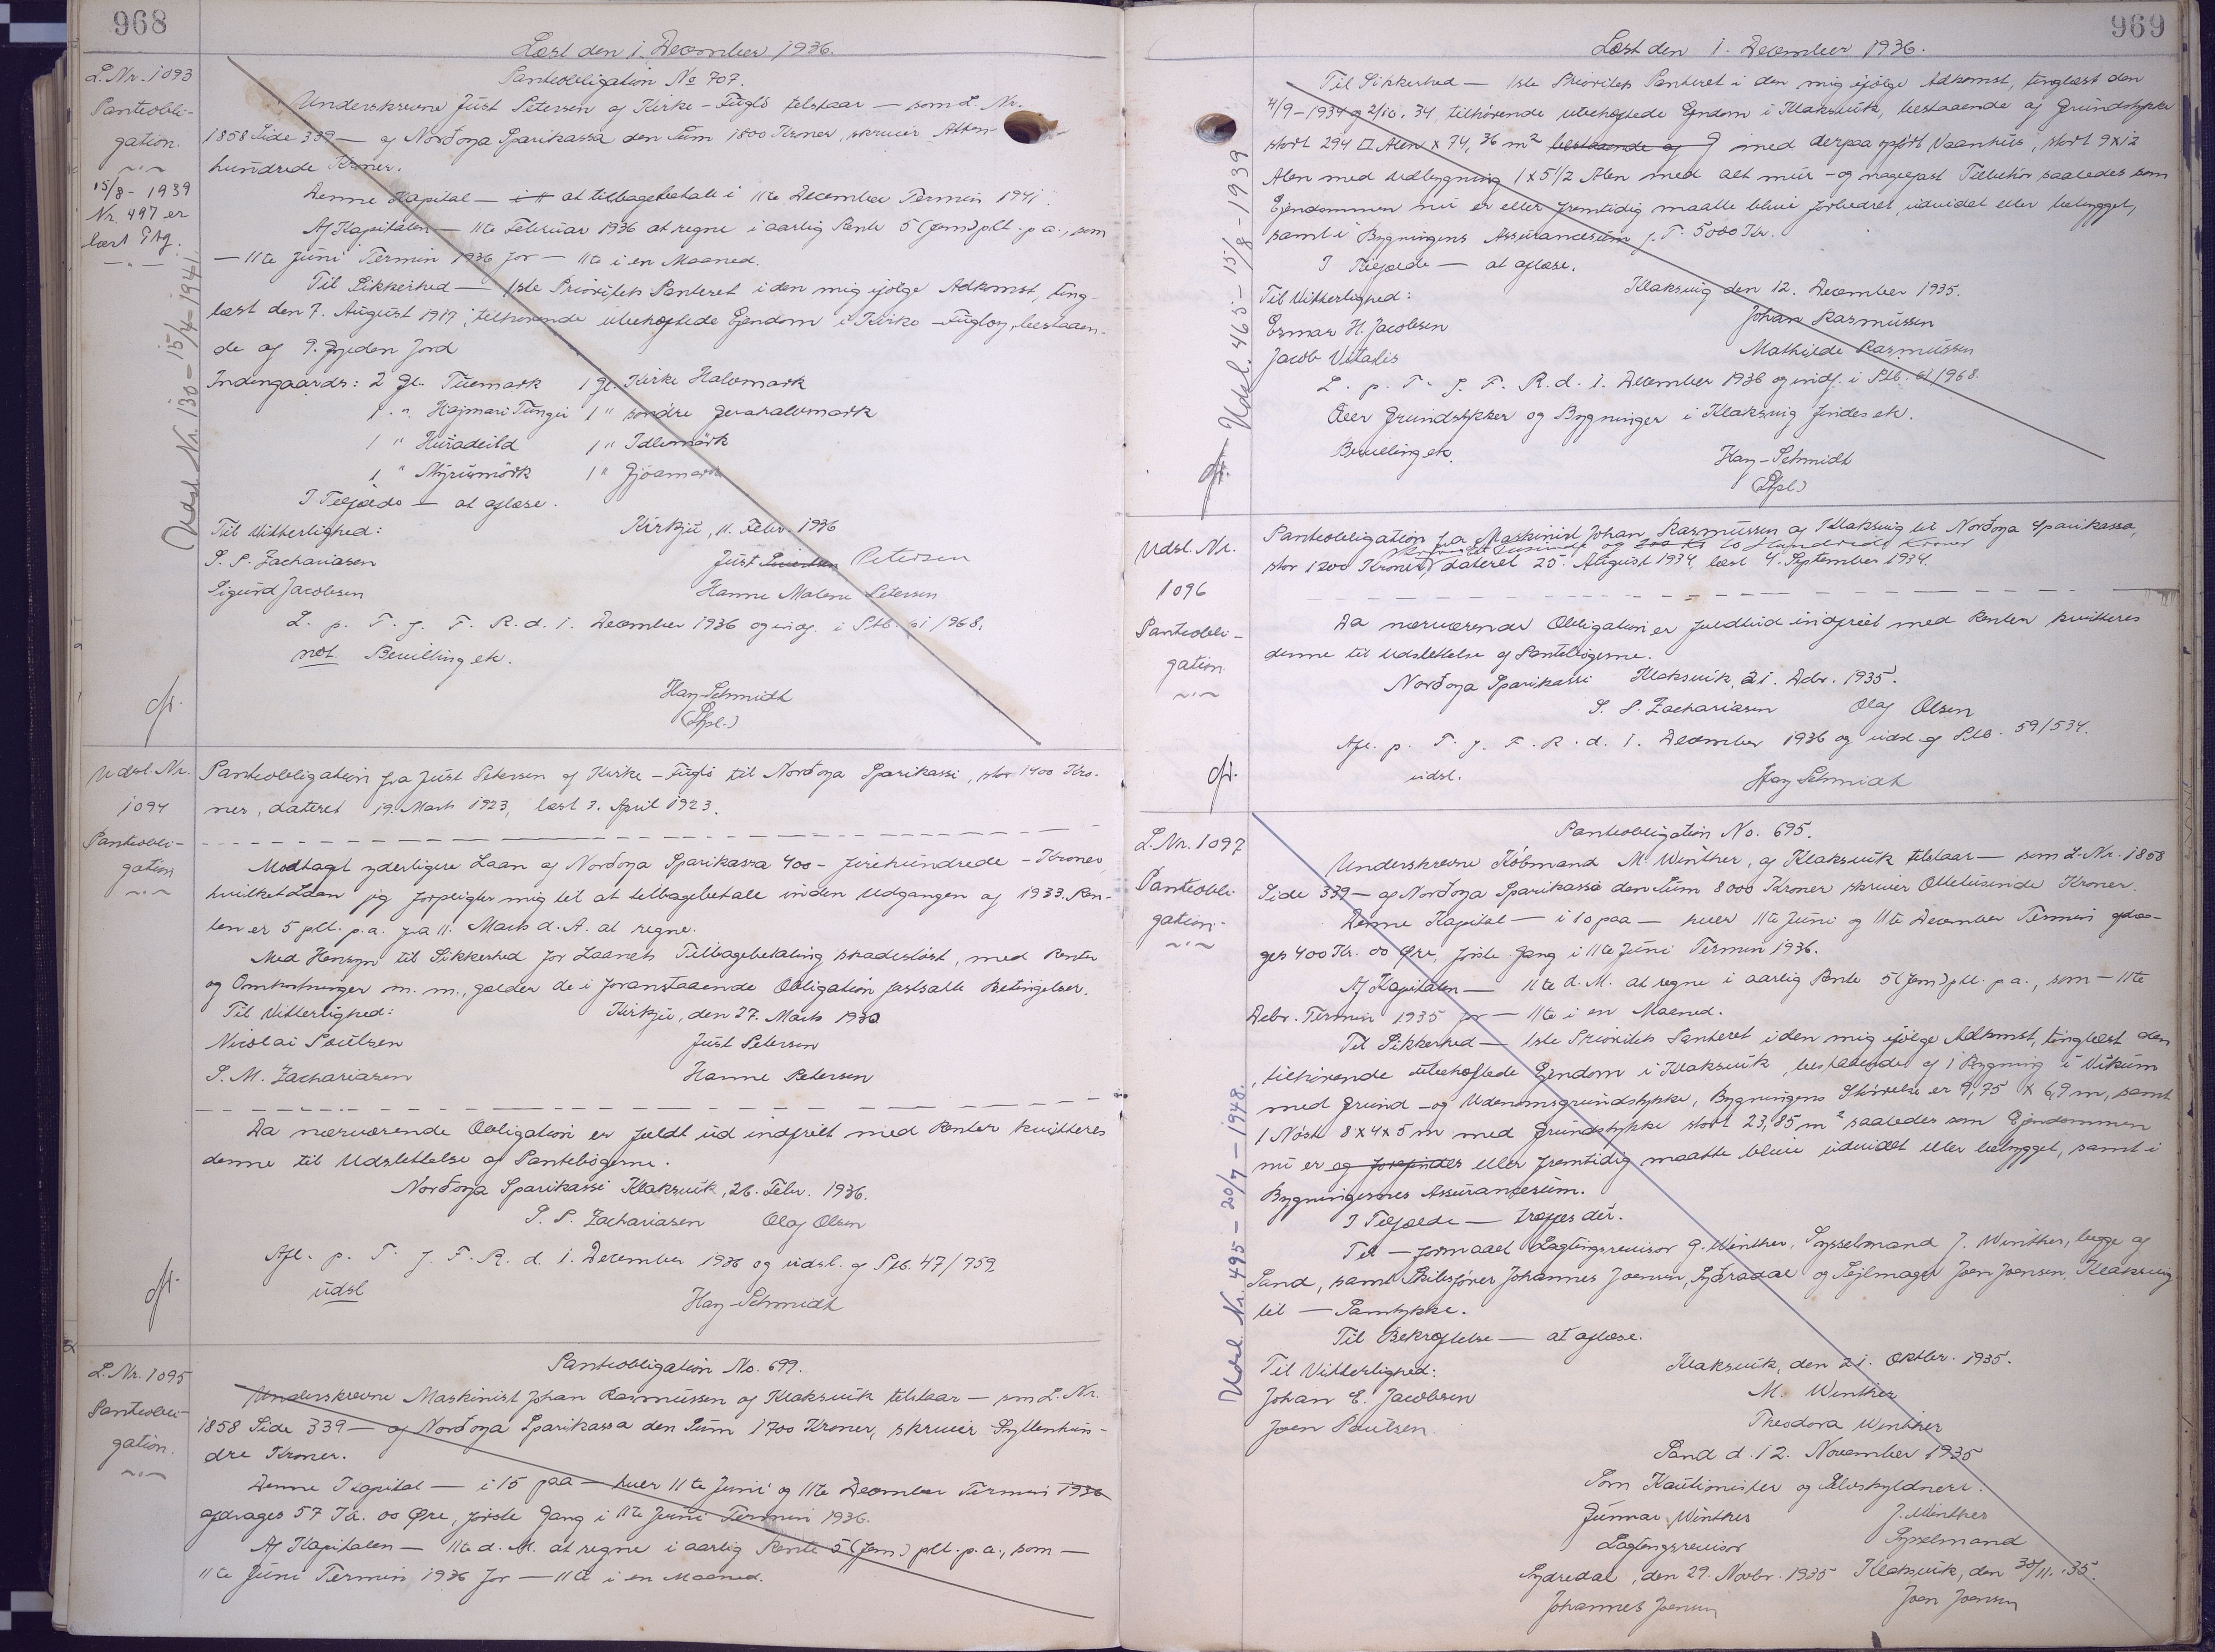 968
Læst den 1. December 1936.
L. Nr. 1093
Panteobli-
gation.
15/8 - 1939
Nr. 497 er
læst Ptg.
Udsl. Nr. 130 - 15/4 - 1941
Panteobligation No 707.
Underskrevne Just Petersen af Kirke-Fuglö tilstaar — som L. Nr.
1858 Side 339 — af Norðoya Sparikassa den Sum 1800 Kroner, skriver Atten
hundrede Kroner.
Denne Kapital — i 11 at tilbagebetale i 11te December Termin 1941.
Af Kapitalen — 11te Februar 1936 at regne i aarlig Rente 5 (fem) pCt. p. a., som
— 11te Juni Termin 1936 for — 11te i en Maaned.
Til Sikkerhed — 1ste Prioritets Panteret i den mig ifölge Adkomst, ting-
læst den 7. August 1917, tilhörende ubehæftede Ejendom i Kirke-Fugloy, bestaaen-
de af 9. Gyeden Jord
Indengaards: 2 Gl. Tuemark 1 Gl. Kirke Halvmark
1 " Hajmari Tungu 1 " söndre Gvarahalvmark
1 " Huradeild 1 " Idlumörk
1 " Mýrismörk 1 " Gjöamark
I Tilfælde — at aflæse.
Til Vitterlighed: Kirkju, 11. Febr. 1936
P. S. Zachariasen Just Petersen
Sigurd Jacobsen Hanne Malene Petersen
L. p. T. f. F. R. d. 1. December 1936 og indf. i Ptb. 61/968.
not. Bevilling ek.
Hay-Schmidt
(Pfpl.)
Udsl. Nr.
1094
Panteobli-
gation
Panteobligation fra Just Petersen af Kirke-Fuglö til Norðoya Sparikassi, stor 1400 Kro-
ner, dateret 19. Marts 1923, læst 3. April 1923.
Modtaget yderligere Laan af Norðoya Sparikassa 400 - firehundrede - Kroner,
hvilket Laan jeg forpligter mig til at tilbagebetale inden Udgangen af 1933. Ren-
ten er 5 pCt. p. a. fra 11. Marts d. A. at regne.
Med Hensyn til Sikkerhed for Laanets Tilbagebetaling skadeslöst, med Renter
og Omkostninger m. m., gælder de i foranstaaende Obligation fastsatte Betingelser.
Til Vitterlighed: Kirkju, den 27. Marts 1930
Nicolai Poulsen Just Petersen
S. M. Zachariasen Hanne Petersen
Da nærværende Obligation er fuldt ud indfriet med Renter kvitteres
denne til Udslettelse af Pantebögerne.
Norðoya Sparikassi Klaksvik, 26. Febr. 1936.
P. S. Zachariasen Olaf Olsen
Afl. p. T. f. F. R. d. 1. December 1936 og udsl. af Ptb. 47/759.
udsl Hay-Schmidt
L. Nr. 1095
Panteobli-
gation.
Panteobligation No. 699.
Underskrevne Maskinist Johan Rasmussen af Klaksvik tilstaar — som L. Nr.
1858 Side 339 — af Norðoya Sparikassa den Sum 1700 Kroner, skriver Syttenhun-
dre Kroner.
Denne Kapital — i 15 paa — hver 11te Juni og 11te December Termin 1936
afdrages 57 Kr. 00 Øre, förste Gang i 11te Juni Termin 1936.
Af Kapitalen — 11te d. M. at regne i aarlig Rente 5 (fem) pCt. p. a., som —
11te Juni Termin 1936 for — 11te i en Maaned.
969
Læst den 1. December 1936.
Udsl. 465 - 15/8 - 1939
Til Sikkerhed — 1ste Prioritets Panteret i den mig ifölge Adkomst, tinglæst den
4/9 - 1934 og 2/10. 34, tilhörende ubehæftede Ejendom i Klaksvik, bestaaende af Grundstykke
stort 294 □ Alen x 74,36 m² bestaaende af med derpaa opfört Vaanhus, stort 9x12
Alen med Udbygning 1 x 5 1/2 Alen med alt mur - og nagelfast Tilbehör saaledes som
Ejendommen nu er eller fremtidig maatte blive forbedret, udvidet eller bebygget,
samt i Bygningens Assurancesum f. T. 5000 Kr.
I Tilfælde — at aflæse.
Til Vitterlighed: Klaksvig den 12. December 1935.
Esmar H. Jacobsen Johan Rasmussen
Jacob Vitalis Mathilde Rasmussen
L. p. T. f. F. R. d. 1. December 1936 og indf. i Ptb. 61/968.
Over Grundstykker og Bygninger i Klaksvig findes ek.
Bevilling ek. Hay-Schmidt
(Pfpl.)
Udsl. Nr.
1096
Panteobli-
gation
Panteobligation fra Maskinist Johan Rasmussen af Klaksvig til Norðoya Sparikassa,
skriver et tusinde og 200 Kr to Hundrede Kroner
stor 1200 Kroner, dateret 25. August 1934, læst 4. September 1934.
Da nærværende Obligation er fuldtud indfriet med Renter kvitteres
denne til Udslettelse af Pantebögerne.
Norðoya Sparikassi Klaksvik, 21. Debr. 1935.
P. S. Zachariasen Olaf Olsen
Afl. p. T. f. F. R. d. 1. December 1936 og udsl. af Ptb. 59/534.
udsl. Hay Schmidt
L. Nr. 1097
Panteobli-
gation.
Udsl. Nr. 495 - 20/7 - 1948.
Panteobligation No. 695.
Underskrevne Köbmand M. Winther, af Klaksvik tilstaar — som L. Nr. 1858
Side 339 — af Norðoya Sparikassa den Sum 8000 Kroner skriver Ottetusinde Kroner.
Denne Kapital — i 10 paa — hver 11te Juni og 11te December Termin afdra-
ges 400 Kr. 00 Øre, förste Gang i 11te Juni Termin 1936.
Af Kapitalen — 11te d. M. at regne i aarlig Rente 5 (fem) pCt. p. a., som — 11te
Debr. Termin 1935 for — 11te i en Maaned.
Til Sikkerhed — 1ste Prioritets Panteret i den mig ifölge Adkomst, tinglæst den
, tilhörende ubehæftede Ejendom i Klaksvik, bestaaende af 1 Bygning i Vikum
med Grund - og Udenomsgrundstykke, Bygningens Störrelse er 9,75 x 6,9 m, samt
1 Nöst 8x4x5 m med Grundstykke stort 23,85 m² saaledes som Ejendommen
nu er og forefindes eller fremtidig maatte blive udvidet eller bebygget, samt i
Bygningernes Assurancesum.
I Tilfælde — træffes dér.
Til — formaaet Lagtingsrevisor G. Winther, Sysselmand J. Winther, begge af
Sand, samt Skibsförer Johannes Joensen, Syðradal og Sejlmager Joen Joensen, Klaksvig
til — Samtykke.
Til Bekræftelse — at aflæse.
Til Vitterlighed: Klaksvik, den 21. Oktbr. 1935.
Johan E. Jacobsen M. Winther
Joen Poulsen Theodora Winther
Sand d. 12. November 1935
Som Kautionister og Selvskyldnere.
Gunnar Winther J. Winther
Lagtingsrevisor Sysselmand
Sydredal, den 29. Novbr. 1935 Klaksvik, den 30/11. 35.
Johannes Joensen Joen Joensen